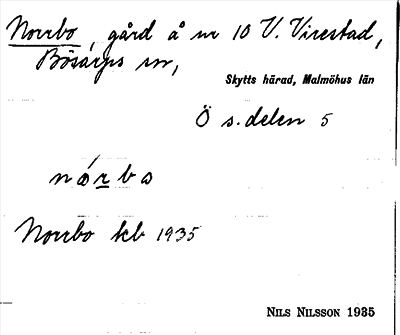 Norrbo, gård å nr 10 V. Virestad,
Bösarps sn,
Skytts härad, Malmöhus län
Ö s. delen 5
nórbo
Norrbo kb 1935
NILS NILSSON 1935